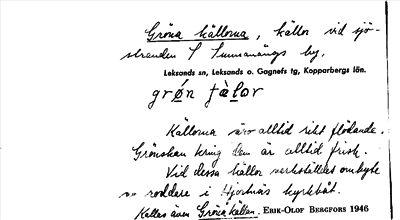 Gröna källorna, källor vid sjö-
stranden S Sunnanängs by,
Leksands sn, Leksands o. Gagnefs tg, Kopparbergs län.
grø̀n fæ̀lor
Källorna äro alltid rikt flödande.
Grönskan kring dem är alltid frisk.
Vid dessa källor verkställdes ombyte
av roddare i Hjortnäs kyrkbåt.
Kallas även Gröna källen. ERIK-OLOF BERGFORS 1946